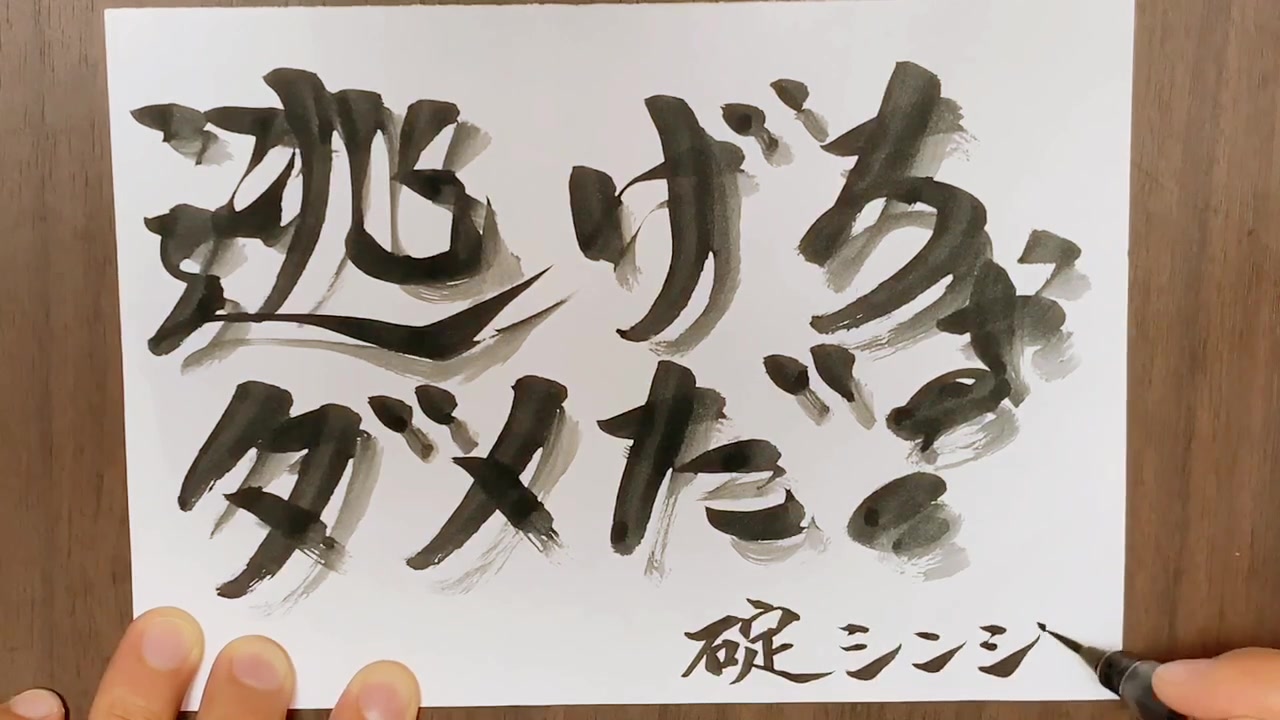 逃げちゃ
ダメだ。
碇シンジ